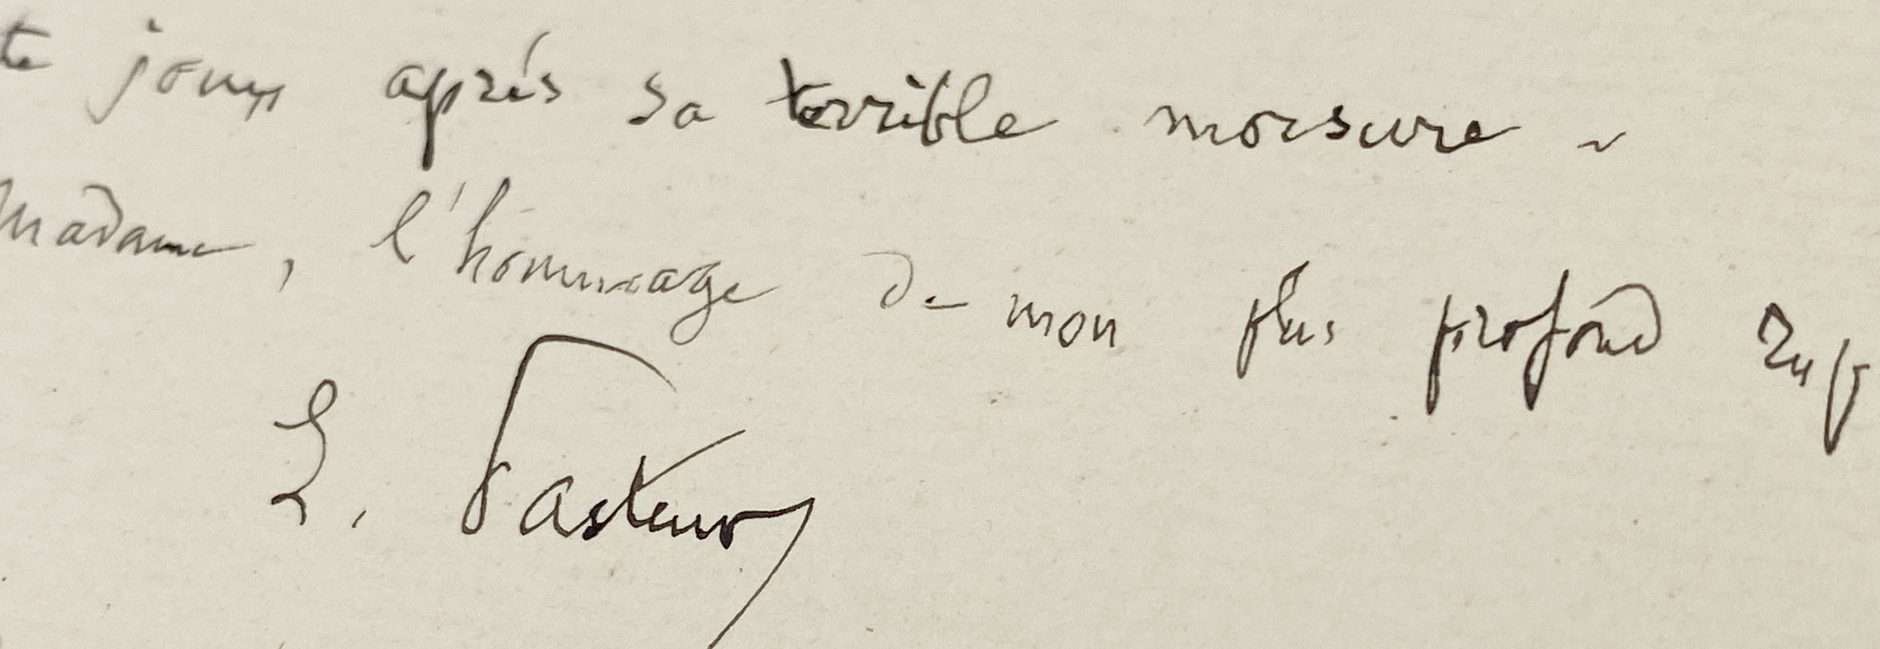 te jours après sa terrible morsure ~
Madame, l'hommage de mon plus profond resp
L. Pasteur